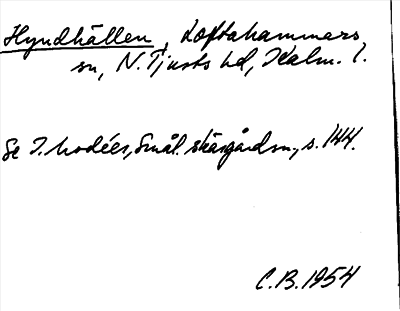 Hyndhällen, Loftahammars
sn, N. Tjusts hd, Kalm. l.
Se I. Modéer, Smål. skärgårdsn., s. 144.
C.B. 1954